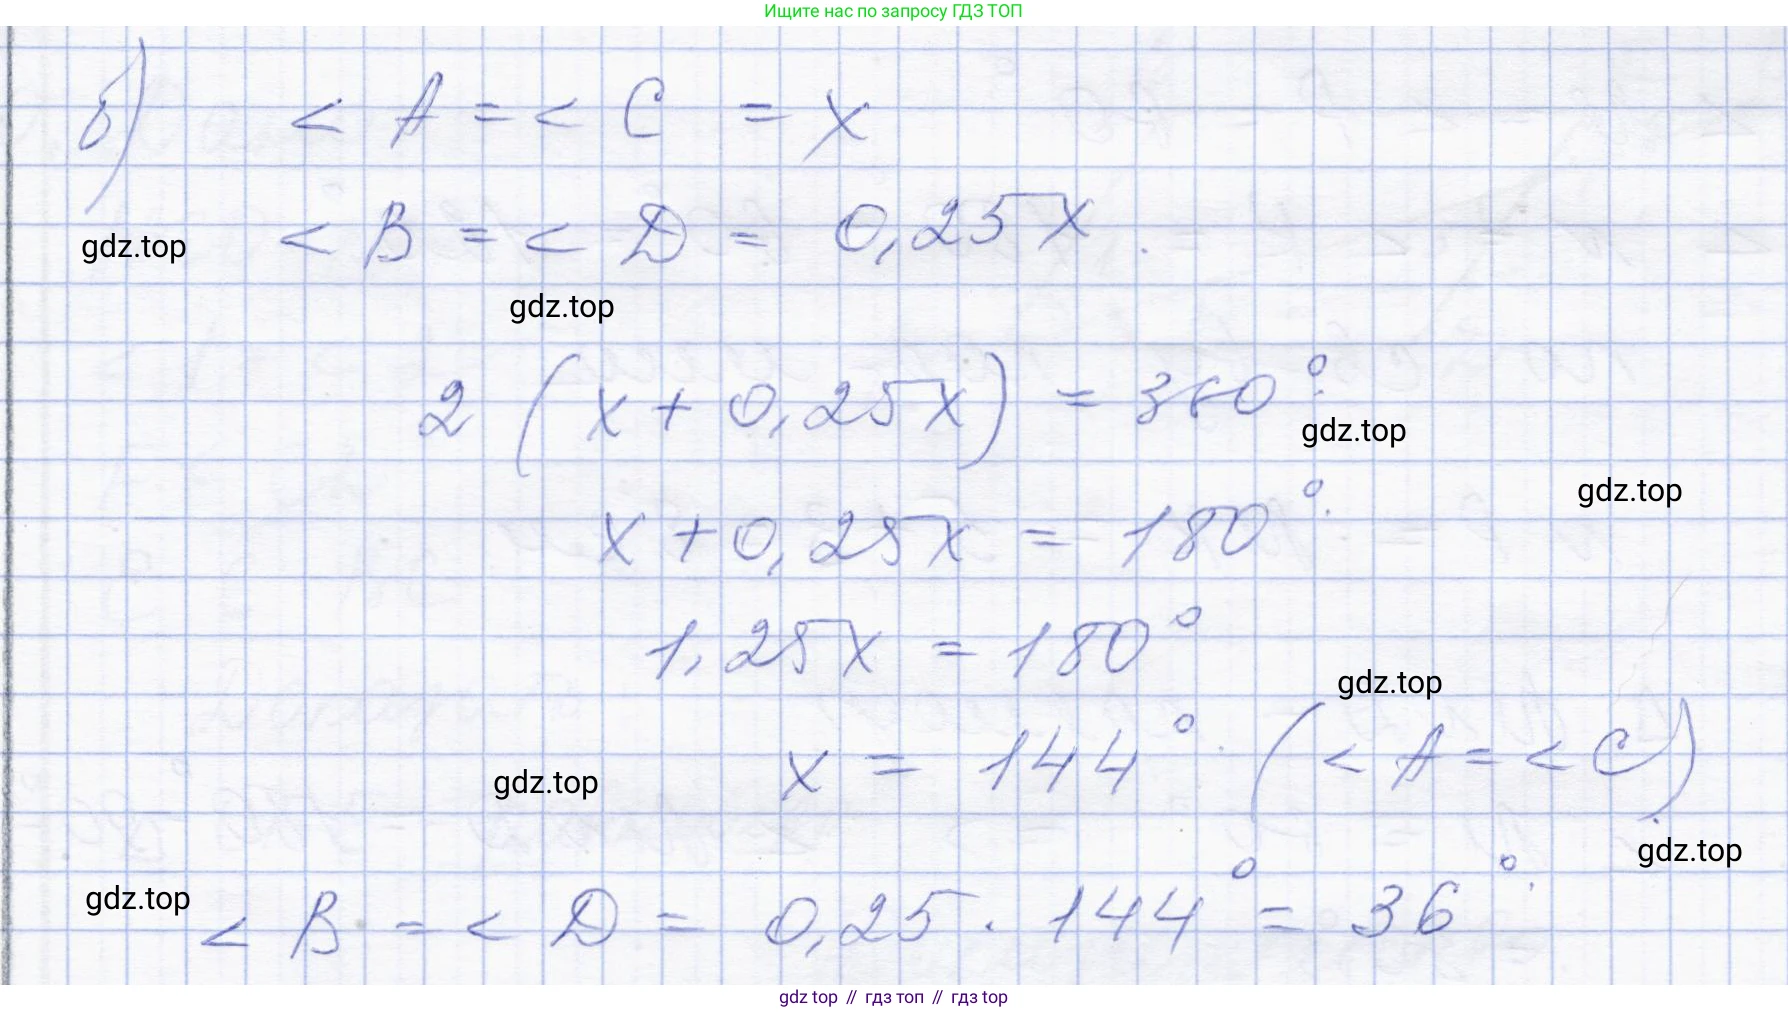 Ищите нас по запросу ГДЗ ТОП
б) < A = < C = x
gdz.top
< B = < D = 0,25x.
gdz.top
2 (x + 0,25x) = 360°.
gdz.top
gdz.top
x + 0,25x = 180°.
1,25x = 180°
gdz.top
x = 144°. (< A = < C).
gdz.top
gdz.top
gdz.top
< B = < D = 0,25 · 144° = 36°.
gdz top // гдз топ // гдз top